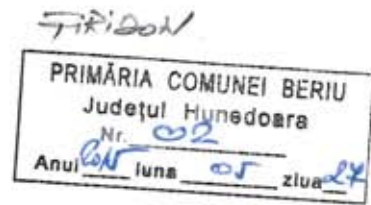 ȚIRIDON
PRIMĂRIA COMUNEI BERIU
Județul Hunedoara
Nr. 02
Anul luna 05 ziua 27